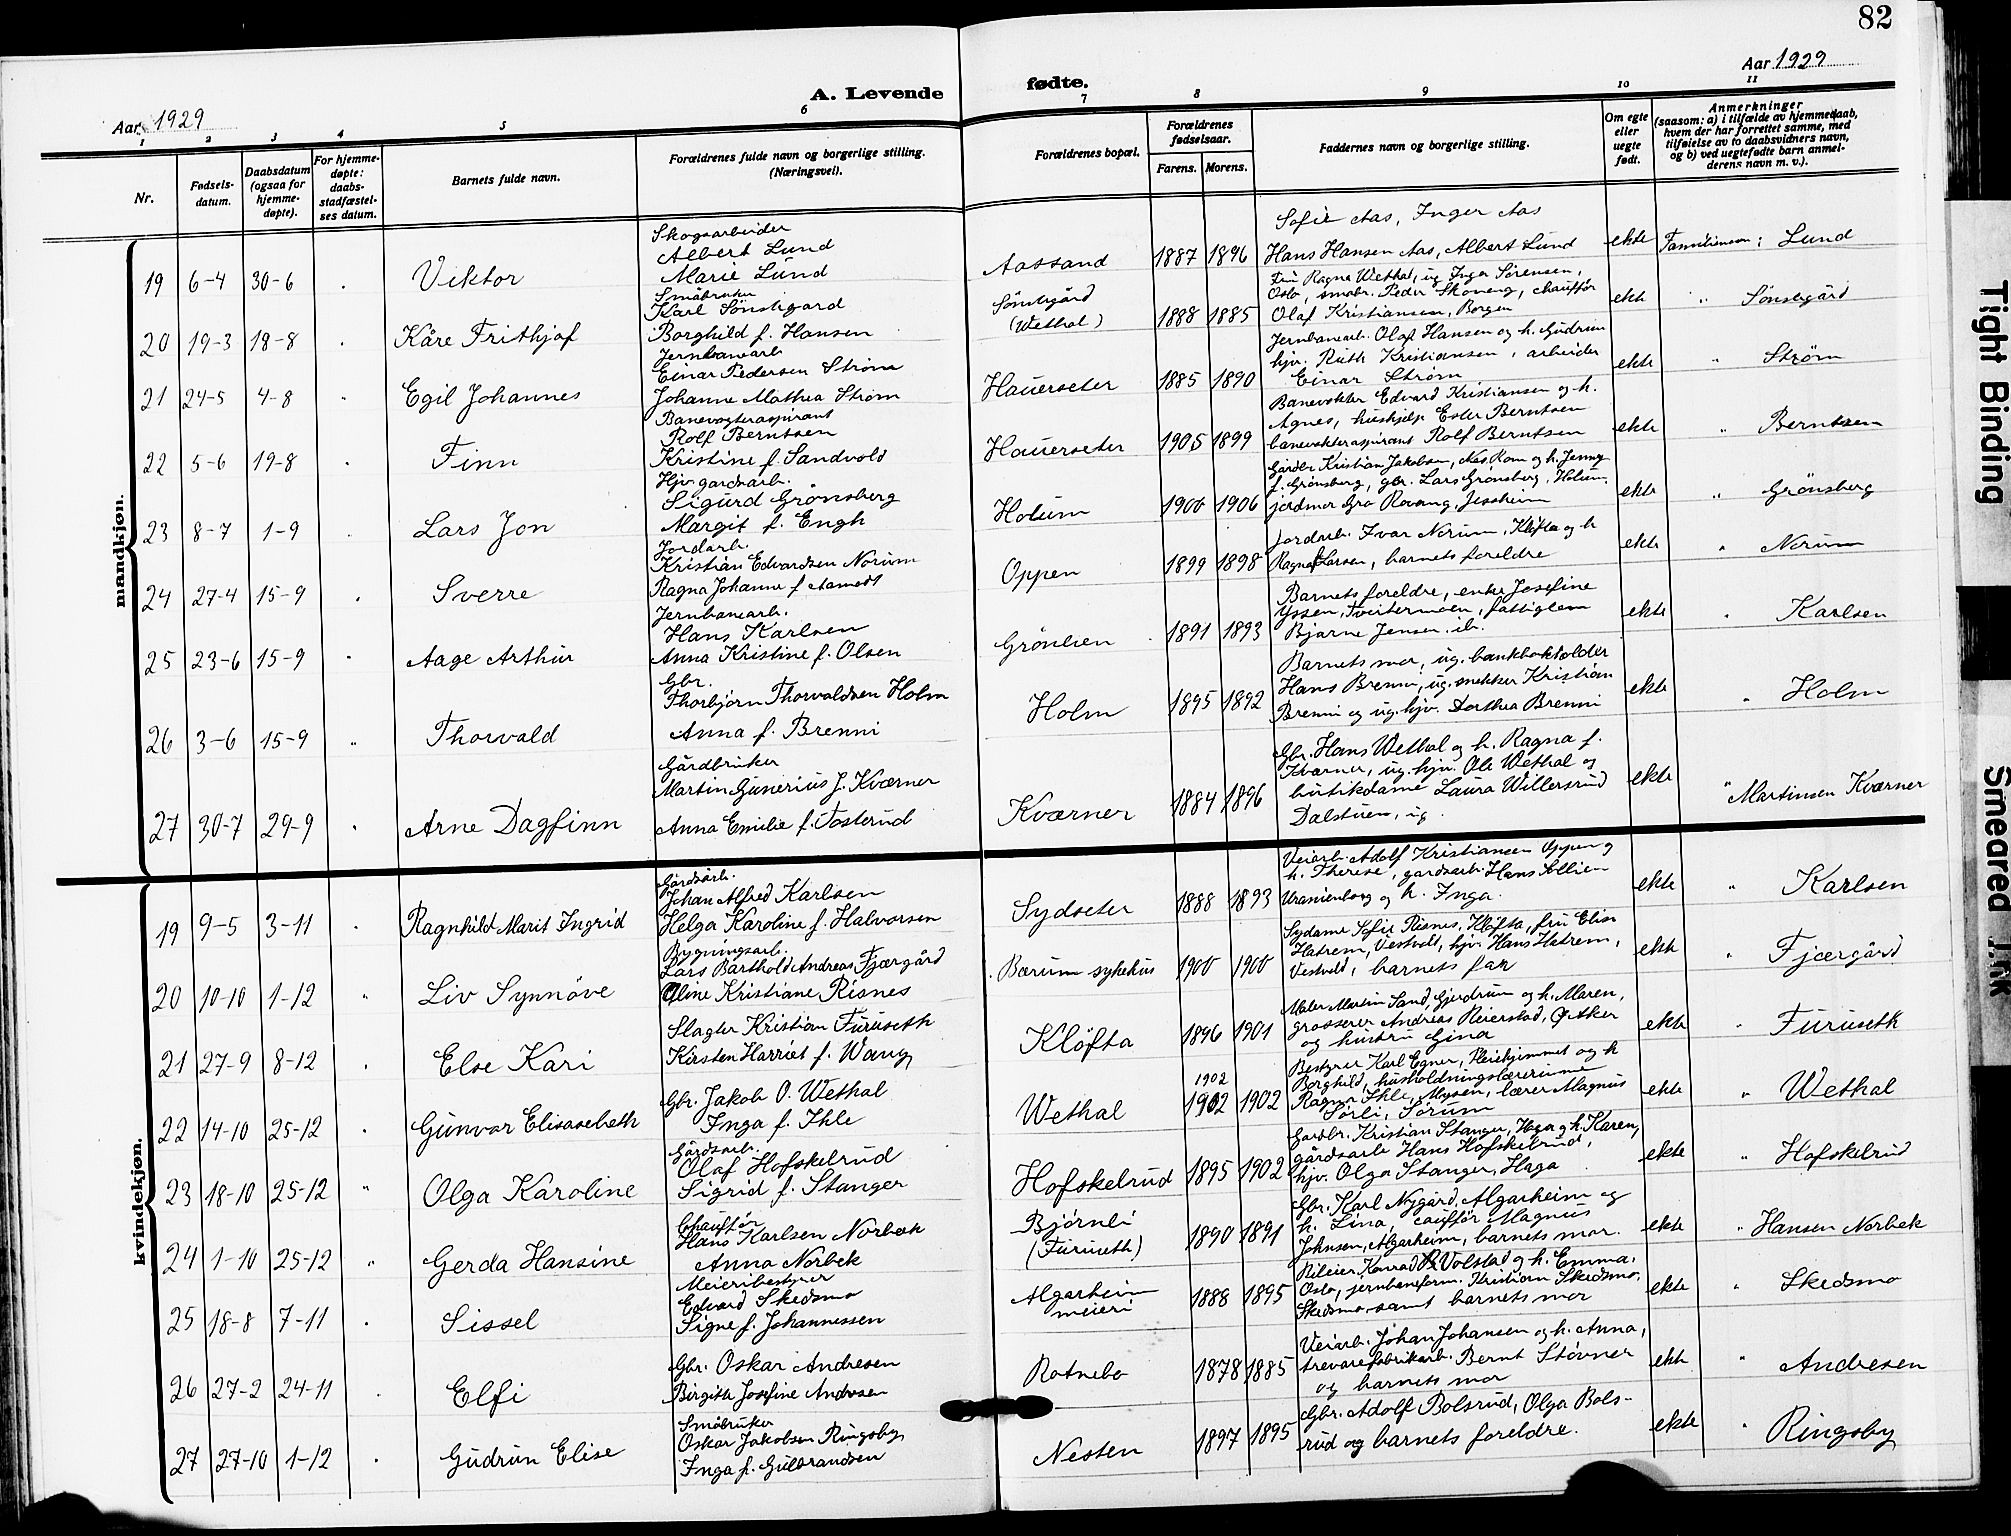 82
A. Levende fødte.
Aar 1929
Aar 1929
1 2 3 4 5 6 7 8 9 10 11
Nr.
Fødsels-
datum.
Daabsdatum
(ogsaa for
hjemme-
døpte).
For hjemme-
døpte:
daabs-
stadfæstel-
ses datum.
Barnets fulde navn.
Forældrenes fulde navn og borgerlige stilling.
(Næringsvei).
Forældrenes bopæl.
Forældrenes
fødselsaar.
Farens. Morens.
Faddernes navn og borgerlige stilling.
Om egte
eller
uegte
født.
Anmerkninger
(saasom: a) i tilfælde av hjemmedaab,
hvem der har forrettet samme, med
tilføielse av to daabsvidners navn,
og b) ved uegtefødte barn anmel-
derens navn m. v.).
mandkjøn.
19 6-4 30-6 Viktor
Skogsarbeider
Albert Lund
Marie Lund
Aassand 1887 1896
Sofie Aas, Inger Aas
Hans Hansen Aas, Albert Lund
ekte Familienavn: Lund
20 19-3 18-8 Kåre Frithjof
Småbruker
Karl Sönstegard
Borghild f. Hansen
Sönstegård
(Wethal)
1888 1885
Fru Ragna Wethal, ug. Inga Sörensen,
Oslo, småbr. Peder Skoveng, chauffør
Olaf Kristiansen, Borgen
ekte " Sönstegård
21 24-5 4-8 Egil Johannes
Jernbanearb
Einar Pedersen Ström
Johanne Mathea Ström
Hauerseter 1885 1890
Jernbanearb. Olaf Hansen og h. Gudrun
hjv. Ruth Kristiansen, arbeider
Einar Ström
ekte " Ström
22 5-6 19-8 Finn
Banevogteraspirant
Rolf Berntsen
Kristine f. Sandvold
Hauerseter 1905 1899
Banevokter Edvard Kristiansen og h.
Agnes, hushjelp Ester Berntsen
banevokteraspirant Rolf Berntsen
ekte " Berntsen
23 8-7 1-9 Lars Jon
Hjv. gardsarb.
Sigurd Grönsberg
Margit f. Engh
Holum 1900 1906
Gårdbr Kristian Jakobsen, Nes Rom og h. Jenny
f. Grönsberg, gbr. Lars Grönsberg, Holum,
jordmor Gro Rovang, Jessheim
ekte " Grönsberg
24 27-4 15-9 Sverre
Jordarb.
Kristian Edvardsen Norum
Ragna Johanne f Aamodt
Oppen 1899 1898
Jordarb. Ivar Norum, Klöfta og h
Ragna f Larsen, barnets foreldre
ekte " Norum
25 23-6 15-9 Aage Arthur
Jernbanearb.
Hans Karlsen
Anna Kristine f. Olsen
Grönlien 1891 1893
Barnets foreldre, enke Josefine
Yssen, Tveitermoen, fattiglem
Bjarne Jensen ib.
ekte " Karlsen
26 3-6 15-9 Thorvald
Gbr.
Thorbjörn Thorvaldsen Holm
Anna f. Brenni
Holm 1895 1892
Barnets mor, ug. bankbokholder
Hans Brenni, ug. snekker Kristian
Brenni og ug. hjv. Dorthea Brenni
ekte " Holm
27 30-7 29-9 Arne Dagfinn
Gårdbruker
Martin Gunerius J. Kværner
Anna Emilie f. Tosterud
Kværner 1884 1896
Gbr. Hans Wethal og h. Ragna f.
Kværner, ug. hjv. Ole Wethal og
butikdame Laura Willersrud
Dalstuen, ug.
ekte " Martinsen Kværner
kvindekjøn.
19 9-5 3-11 Ragnhild Marit Ingrid
Gårdsarb.
Johan Alfred Karlsen
Helga Karoline f. Halvorsen
Sydseter 1888 1893
Veiarb. Adolf Kristiansen Oppen og
h. Therese, gardsarb. Hans
Uranienborg og h. Inga.
ekte " Karlsen
20 10-10 1-12 Liv Synnöve
Bygningsarb.
Lars Barthold Andreas Fjærgård
Oline Kristiane Risnes
Bærum sykehus 1900 1900
Sydame Sofie Risnes, Klöfta, fru Elise
Hatrem, Vestvold, hjv. Hans Hatrem,
Vestvold, barnets far
ekte " Fjærgård
21 27-9 8-12 Else Kari
Slagter Kristian Furuseth
Kirsten Harriet f. Wang
Klöfta 1896 1901
Maler Martin Sand, Gjerdrum og h. Maren,
grosserer Andreas Reierstad, Ö Aker
og hustru Gina
ekte " Furuseth
22 14-10 25-12 Gunvor Elisasebeth
Gbr. Jakob O. Wethal
Inga f. Ihle
Wethal
1902
1902 1902
Bestyrer Karl Egner, Pleiehjemmet og h
Borghild, husholdningslærerinne
Ragna Ihle, Mysen, lærer Magnus
Sörli, Sörum
ekte " Wethal
23 18-10 25-12 Olga Karoline
Gårdsarb.
Olaf Hofskelrud
Sigrid f. Stanger
Hofskelrud 1895 1902
Gardbr. Kristian Stanger, Haga og h. Karen,
gårdsarb Hans Hofskelrud,
hjv. Olga Stanger, Haga
ekte " Hofskelrud
24 1-10 25-12 Gerda Hansine
Chauffør
Hans Karlsen Norbek
Anna Norbek
Björnli
(Furuseth)
1890 1891
Gbr. Karl Nygård, Algarheim og
h. Lina, caufför Magnus
Johnsen, Algarheim, barnets mor.
ekte " Hansen Norbek
25 18-8 7-11 Sissel
Meieribestyrer
Edvard Skedsmo
Signe f. Johannessen
Algarheim
meieri
1888 1895
Bileier Konrad Volstad og h. Emma,
Oslo, jernbaneform. Kristian Skedsmo,
Skedsmo samt barnets mor
ekte " Skedsmo
26 27-2 24-11 Elfi
Gbr. Oskar Andresen
Birgitte Josefine Andresen
Rotnebo 1878 1885
Veiarb. Johan Johansen og h. Anna,
trevarefabrikarb. Bernt Stövner
og barnets mor
ekte " Andresen
27 27-10 1-12 Gudrun Elise
Småbruker
Oskar Jakobsen Ringsby
Inga f. Gulbrandsen
Nesten 1897 1895
Gbr. Adolf Bolsrud, Olga Bols-
rud og barnets foreldre.
ekte " Ringsby
Tight Binding
Smeared Ink